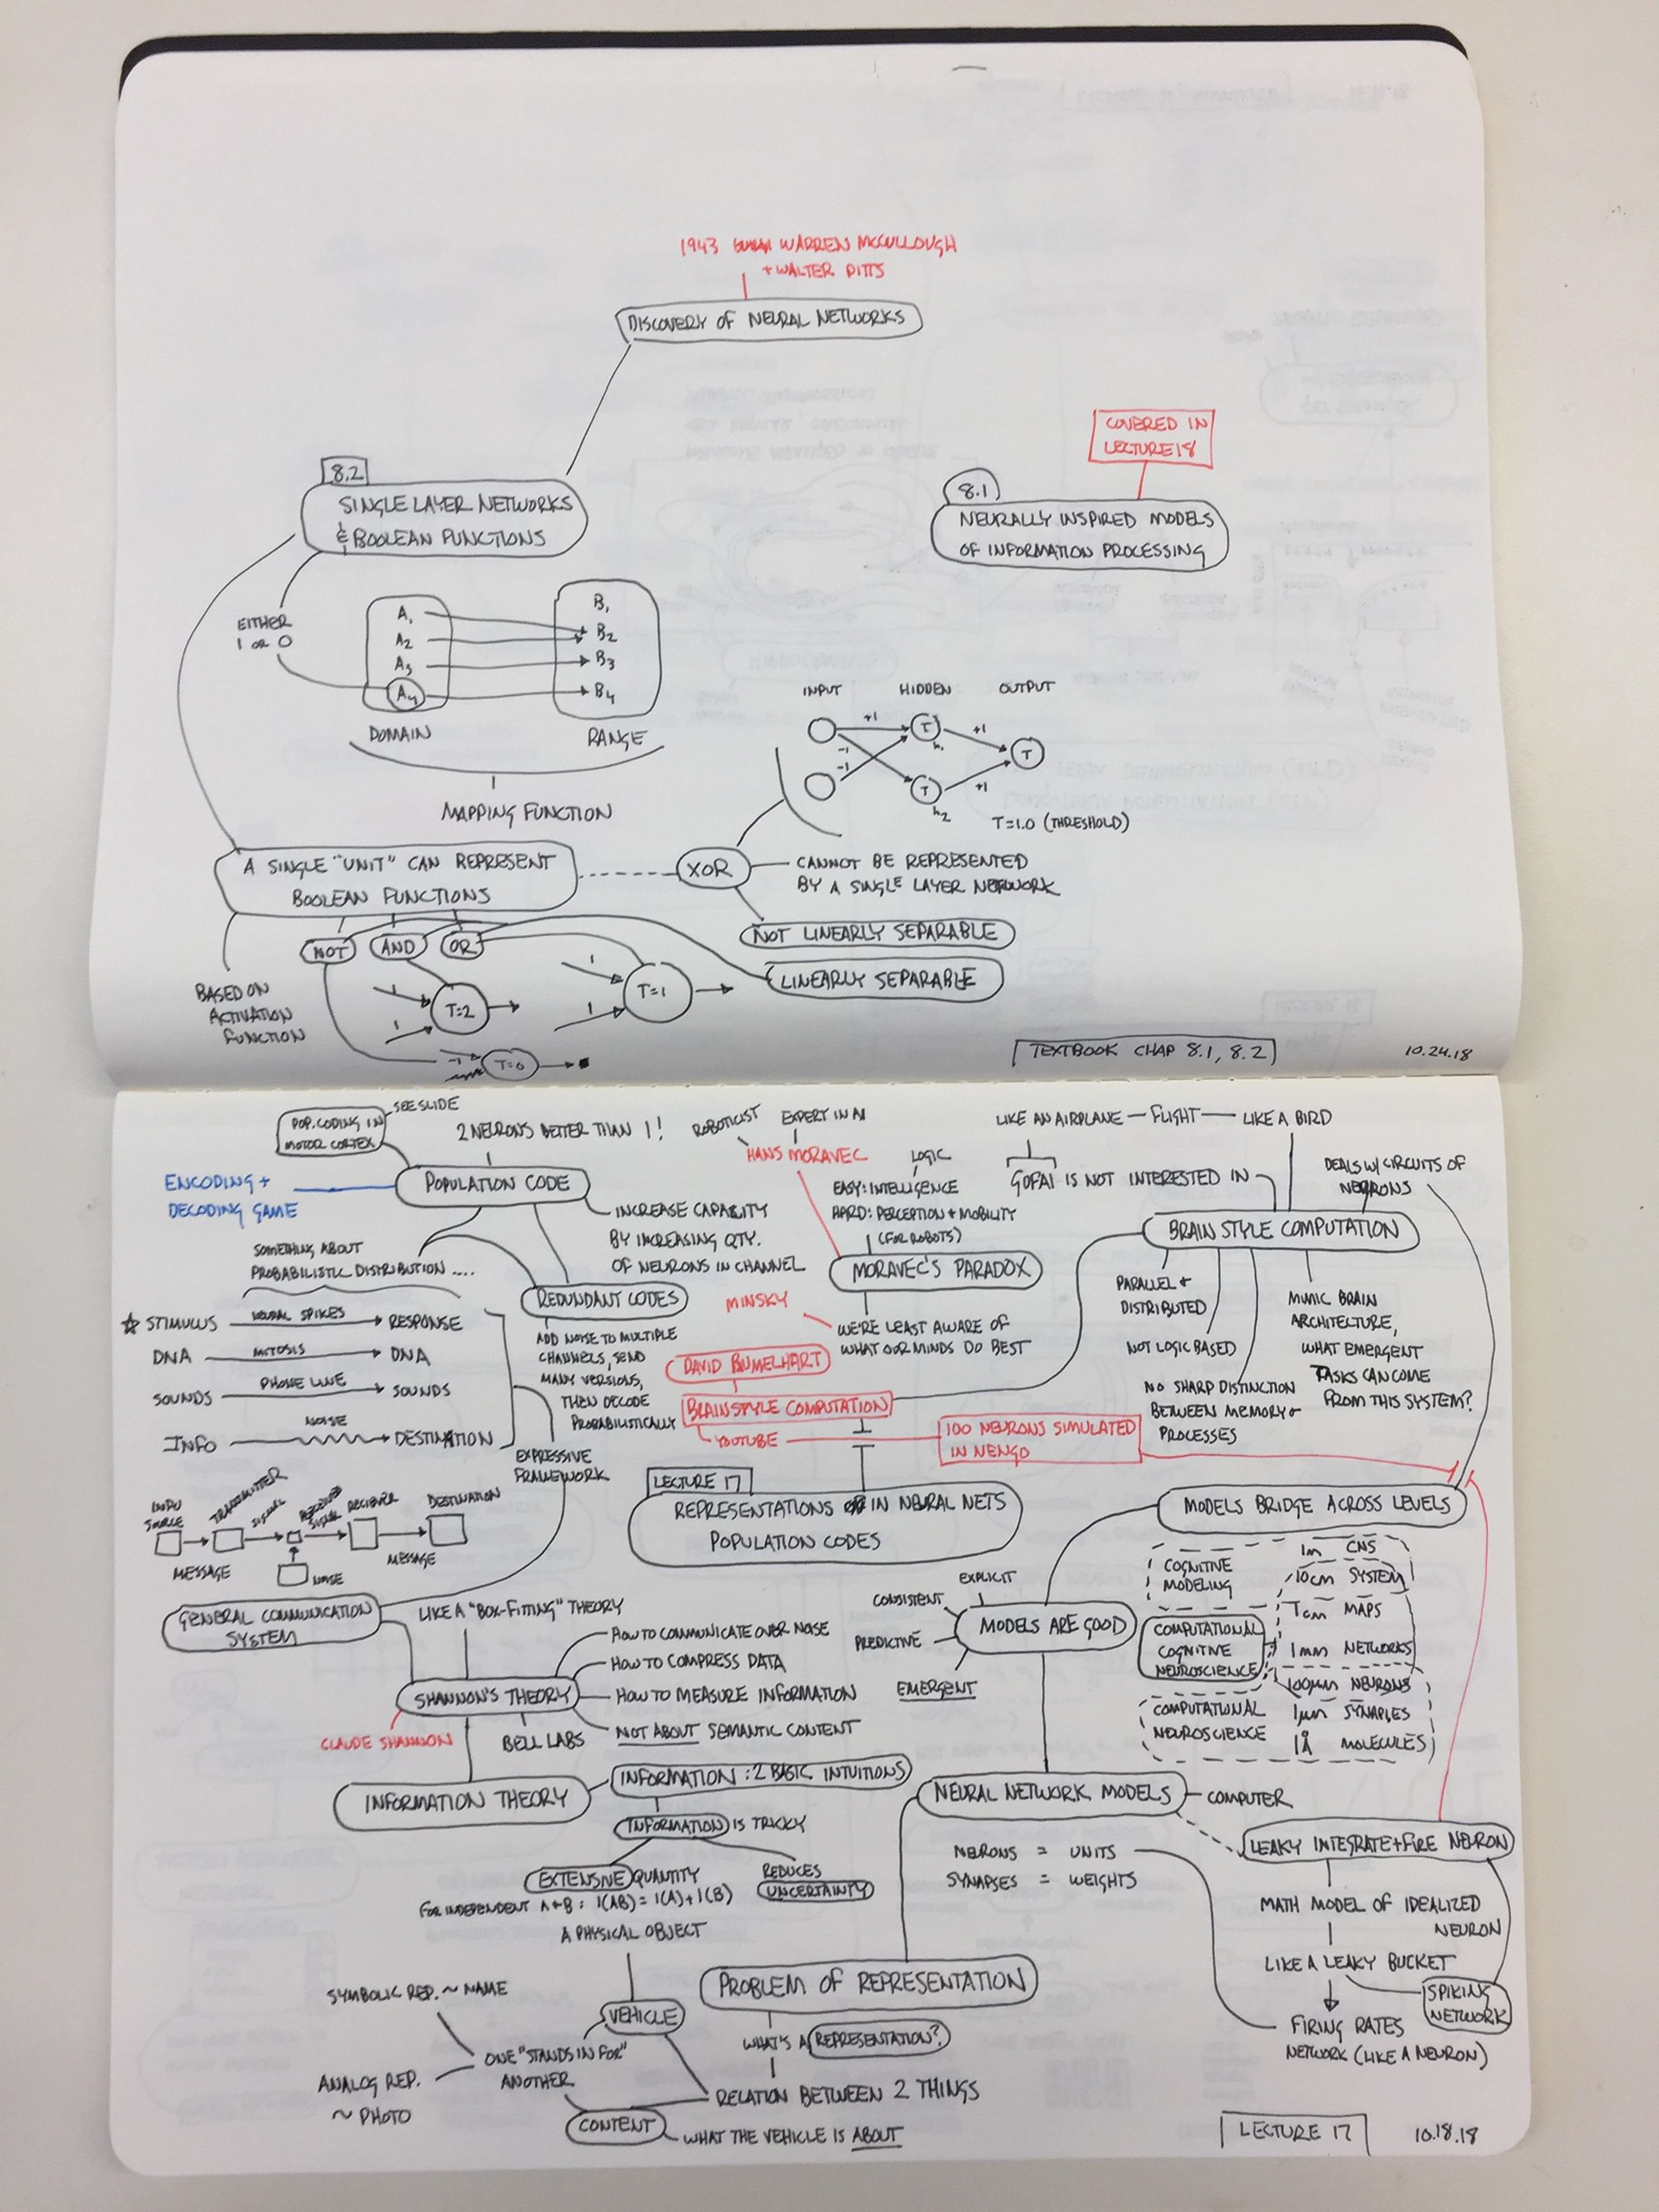 1943 WARREN MCCULLOUGH
+ WALTER PITTS
DISCOVERY OF NEURAL NETWORKS
COVERED IN
LECTURE 18
8.2
SINGLE LAYER NETWORKS
& BOOLEAN FUNCTIONS
8.1
NEURALLY INSPIRED MODELS
OF INFORMATION PROCESSING
EITHER
1 OR 0
A1
A2
A3
A4
DOMAIN
B1
B2
B3
B4
RANGE
MAPPING FUNCTION
INPUT HIDDEN OUTPUT
+1
-1
-1
T
h1
T
h2
+1
+1
T
T=1.0 (THRESHOLD)
A SINGLE "UNIT" CAN REPRESENT
BOOLEAN FUNCTIONS
XOR
CANNOT BE REPRESENTED
BY A SINGLE LAYER NETWORK
NOT LINEARLY SEPARABLE
LINEARLY SEPARABLE
NOT
AND
OR
BASED ON
ACTIVATION
FUNCTION
1
1
T=2
1
1
T=1
-1
T=0
TEXTBOOK CHAP 8.1, 8.2
10.24.18
POP. CODING IN
MOTOR CORTEX
SEE SLIDE
2 NEURONS BETTER THAN 1!
ENCODING +
DECODING GAME
POPULATION CODE
INCREASE CAPACITY
BY INCREASING QTY.
OF NEURONS IN CHANNEL
SOMETHING ABOUT
PROBABILISTIC DISTRIBUTION ....
REDUNDANT CODES
ADD NOISE TO MULTIPLE
CHANNELS, SEND
MANY VERSIONS,
THEN DECODE
PROBABILISTICALLY
STIMULUS NEURAL SPIKES RESPONSE
DNA MITOSIS DNA
SOUNDS PHONE LINE SOUNDS
INFO NOISE DESTINATION
EXPRESSIVE
FRAMEWORK
ROBOTICIST
EXPERT IN AI
HANS MORAVEC
LOGIC
EASY: INTELLIGENCE
HARD: PERCEPTION + MOBILITY
(FOR ROBOTS)
MORAVEC'S PARADOX
MINSKY
WE'RE LEAST AWARE OF
WHAT OUR MINDS DO BEST
DAVID RUMELHART
BRAINSTYLE COMPUTATION
YOUTUBE
100 NEURONS SIMULATED
IN NENGO
LIKE AN AIRPLANE — FLIGHT — LIKE A BIRD
GOFAI IS NOT INTERESTED IN
DEALS W/ CIRCUITS OF
NEURONS
BRAIN STYLE COMPUTATION
PARALLEL +
DISTRIBUTED
NOT LOGIC BASED
NO SHARP DISTINCTION
BETWEEN MEMORY +
PROCESSES
MIMIC BRAIN
ARCHITECTURE,
WHAT EMERGENT
TASKS CAN COME
FROM THIS SYSTEM?
LECTURE 17
REPRESENTATIONS IN NEURAL NETS
POPULATION CODES
INFO
SOURCE
TRANSMITTER
SIGNAL
RECEIVED
SIGNAL
RECIEVER
DESTINATION
MESSAGE
NOISE
MESSAGE
GENERAL COMMUNICATION
SYSTEM
LIKE A "BOX-FITTING" THEORY
HOW TO COMMUNICATE OVER NOISE
HOW TO COMPRESS DATA
HOW TO MEASURE INFORMATION
NOT ABOUT SEMANTIC CONTENT
SHANNON'S THEORY
CLAUDE SHANNON
BELL LABS
EXPLICIT
CONSISTENT
PREDICTIVE
EMERGENT
MODELS ARE GOOD
MODELS BRIDGE ACROSS LEVELS
COGNITIVE
MODELING
COMPUTATIONAL
COGNITIVE
NEUROSCIENCE
COMPUTATIONAL
NEUROSCIENCE
1m CNS
10cm SYSTEM
1cm MAPS
1mm NETWORKS
100µm NEURONS
1µm SYNAPSES
1Å MOLECULES
INFORMATION THEORY
INFORMATION : 2 BASIC INTUITIONS
INFORMATION IS TRICKY
EXTENSIVE QUANTITY
FOR INDEPENDENT A+B : I(AB) = I(A) + I(B)
REDUCES
UNCERTAINTY
NEURAL NETWORK MODELS
COMPUTER
NEURONS = UNITS
SYNAPSES = WEIGHTS
LEAKY INTEGRATE+FIRE NEURON
MATH MODEL OF IDEALIZED
NEURON
LIKE A LEAKY BUCKET
SPIKING
NETWORK
FIRING RATES
NETWORK (LIKE A NEURON)
A PHYSICAL OBJECT
PROBLEM OF REPRESENTATION
SYMBOLIC REP. ~ NAME
VEHICLE
WHAT'S A REPRESENTATION?
ONE "STANDS IN FOR"
ANOTHER
ANALOG REP.
~ PHOTO
RELATION BETWEEN 2 THINGS
CONTENT
WHAT THE VEHICLE IS ABOUT
LECTURE 17
10.18.18